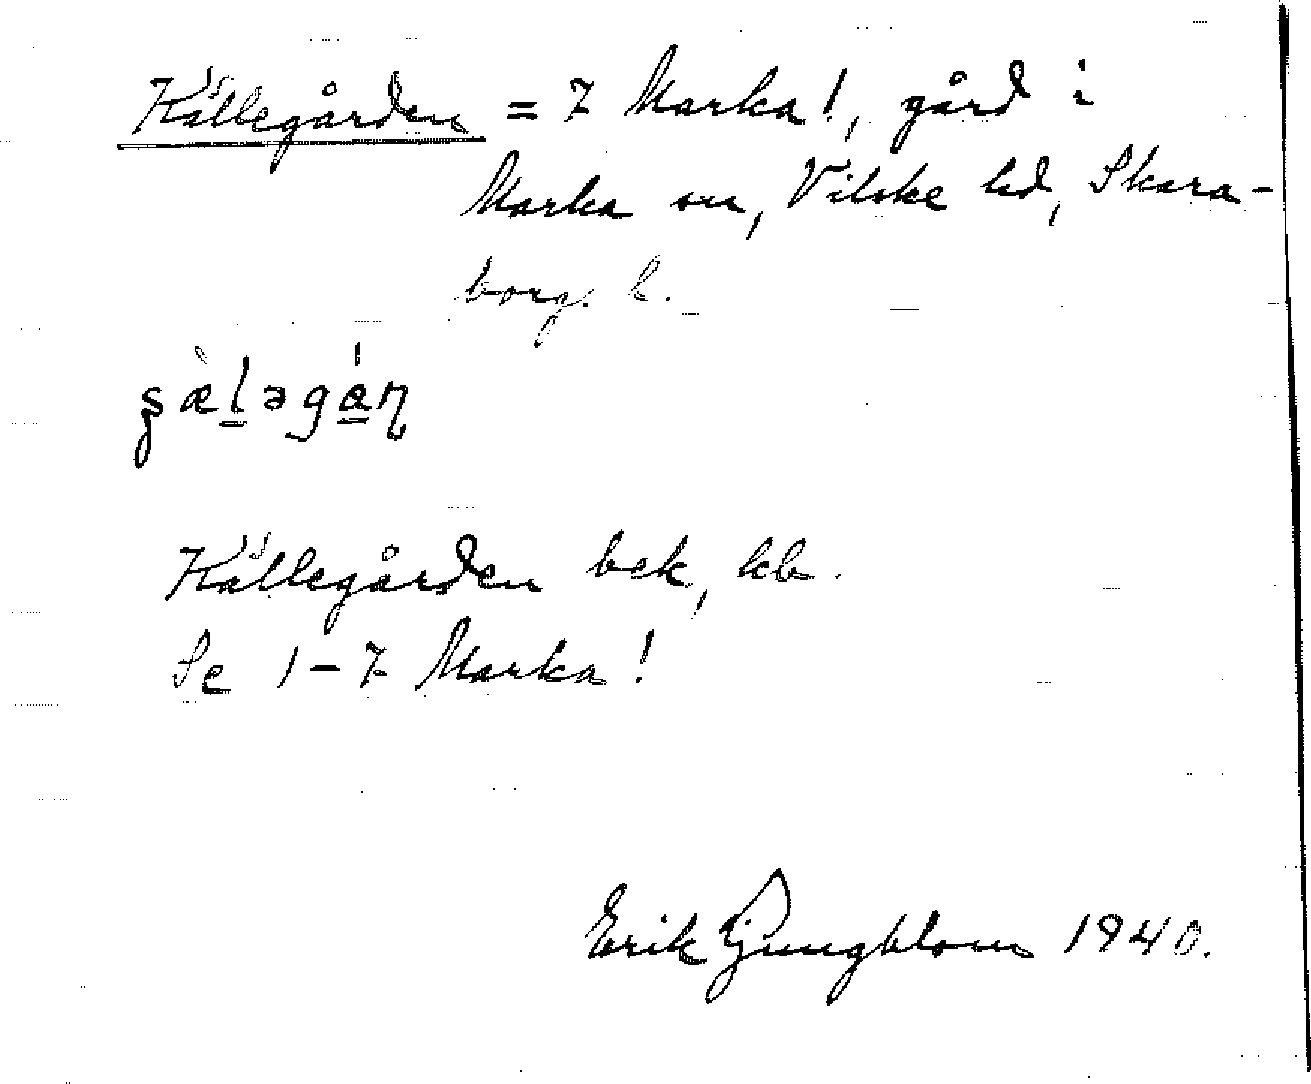 Källegården = 7 Marka!, gård i
Marka sn, Vilske hd, Skara-
borgs l.
Källegården bek, kb.
Se 1-7 Marka!
Erik Ljungblom 1940.